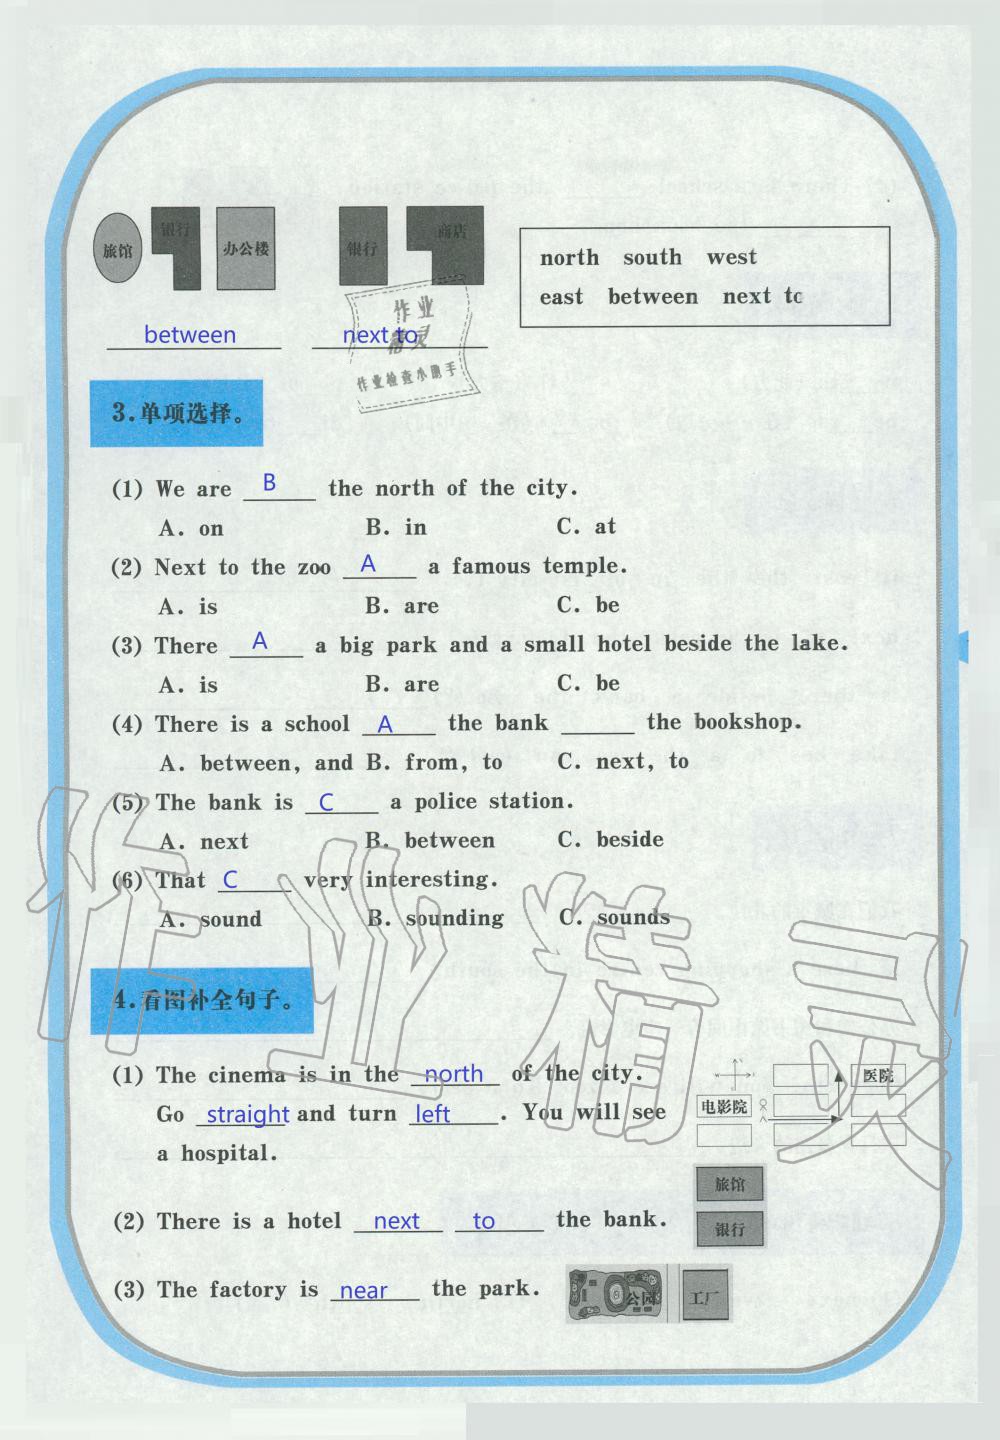 旅馆 银行 办公楼 银行 商店
north south west
east between next to
between next to
作业
精灵
作业检查小助手
3.单项选择。
(1) We are B the north of the city.
A. on B. in C. at
(2) Next to the zoo A a famous temple.
A. is B. are C. be
(3) There A a big park and a small hotel beside the lake.
A. is B. are C. be
(4) There is a school A the bank ______ the bookshop.
A. between, and B. from, to C. next, to
(5) The bank is C a police station.
A. next B. between C. beside
(6) That C very interesting.
A. sound B. sounding C. sounds
作业精灵
4.看图补全句子。
(1) The cinema is in the north of the city.
Go straight and turn left . You will see
a hospital.
医院
电影院
旅馆
(2) There is a hotel next to the bank.
银行
(3) The factory is near the park.
公园 工厂